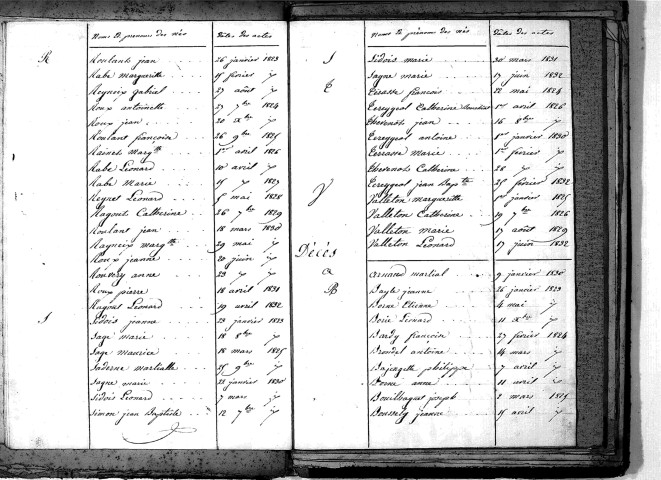 Noms & prénoms des nés Dates des actes
R Roulant jean 26 janvier 1823
Rabe marguerite 15 février 7°
Reynoix gabriel 27 août 7°
Roux antoinette 27 7bre 1824
Roux jean 20 Xbre 7°
Roulant françoise 26 9bre 1825
Rainet margte 1er avril 1826
Rabe Léonard 10 avril 7°
Rabe Marie 15 7° 1827
Reynet Léonard 5 mai 1828
Ragout Catherine 26 7bre 1829
Roulant jean 18 mars 1830
Rayneix margte 29 mai 7°
Roux jeanne 20 juin 7°
Rouvery anne 22 7° 7°
Roux pierre 18 avril 1831
Ragout Léonard 19 avril 1832
S Sidois jeanne 23 janvier 1823
Sage marie 18 8bre 7°
Sage maurice 18 mars 1825
Saderne martialle 25 9bre 7°
Sagne marie 25 janvier 1830
Sidois Léonard 7 mars 7°
Simon jean Baptiste 12 7bre 7°
Noms & prénoms des nés Dates des actes
S Sidois marie 30 mars 1831
Sagne marie 17 juin 1832
T Terrasse francois 22 mai 1824
Tereygeol Catherine 1er avril 1826
Thevenot jean 16 8bre 7°
Tereygeol antoine 1er janvier 1830
Terrasse Marie 1er février 7°
Thevenot Catherine 26 7° 7°
Tereygeol jean Bapte 25 février 1832
V Valleton marguerite 1er janvier 1825
Valleton Catherine 19 7bre 1826
Valleton marie 17 août 1829
Valleton Léonard 17 juin 1832
Décès
a Arnaud martial 9 janvier 1830
B Bayle jeanne 26 janvier 1823
Borne Etienne 4 mai 7°
Borie Léonard 11 Xbre 7°
Bardy françoise 27 février 1824
Brondel antoine 14 mars 7°
Bajengette philippe 7 avril 7°
Borne anne 11 avril 7°
Bouilhaguet joseph 2 mars 1825
Boussely jeanne 15 avril 7°